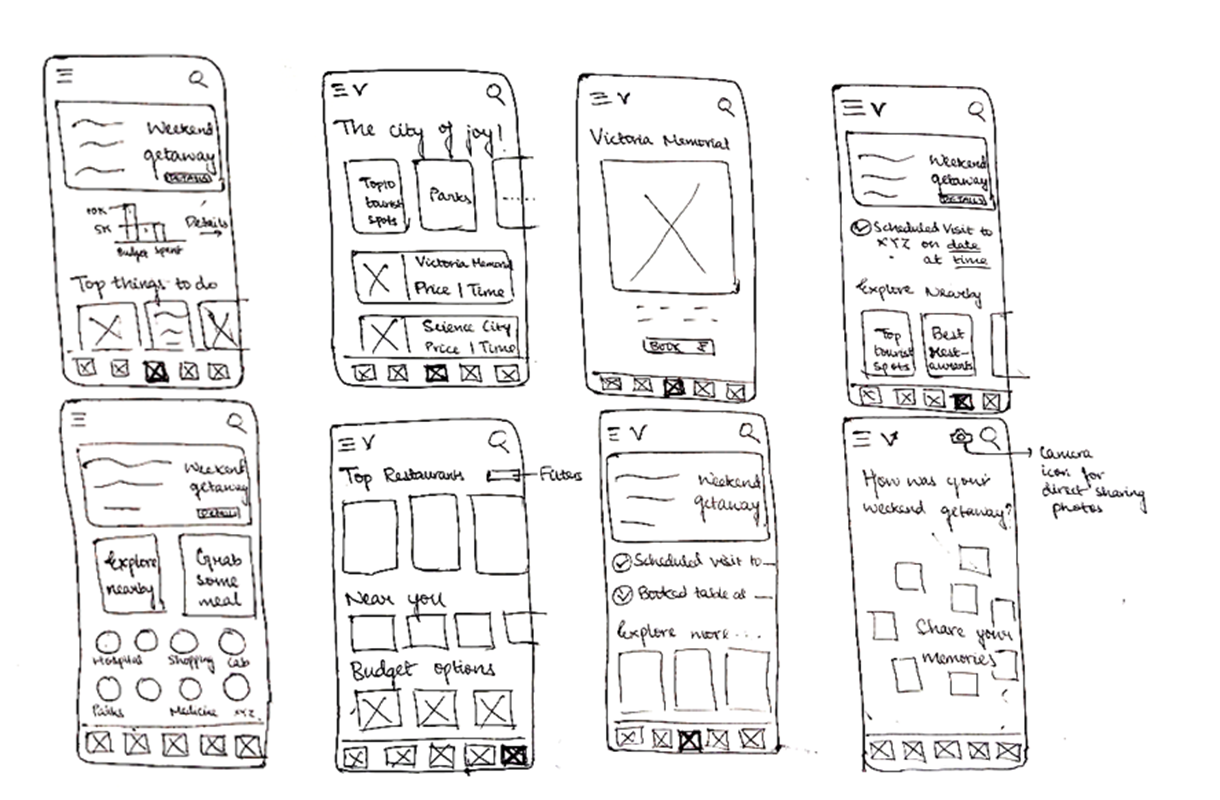 Weekend
getaway
DETAILS
10K
5K
Budget spent
Details
Top things to do
V
The city of joy!
Top10
tourist
spots
Parks
Victoria Memorial
Price | Time
Science City
Price | Time
V
Victoria Memorial
BOOK ₹
V
Weekend
getaway
DETAILS
Scheduled Visit to
XYZ on date
at time
Explore Nearby
Top
tourist
spots
Best
Rest-
aurants
Weekend
getaway
DETAILS
Explore
nearby
Grab
some
meal
Hospital Shopping Cab
Parks Medicine XYZ
V
Top Restaurants
Filters
Near you
Budget options
V
Weekend
getaway
Scheduled visit to
Booked table at
Explore more...
V
Camera
icon for
direct sharing
photos
How was your
weekend getaway?
Share your
memories